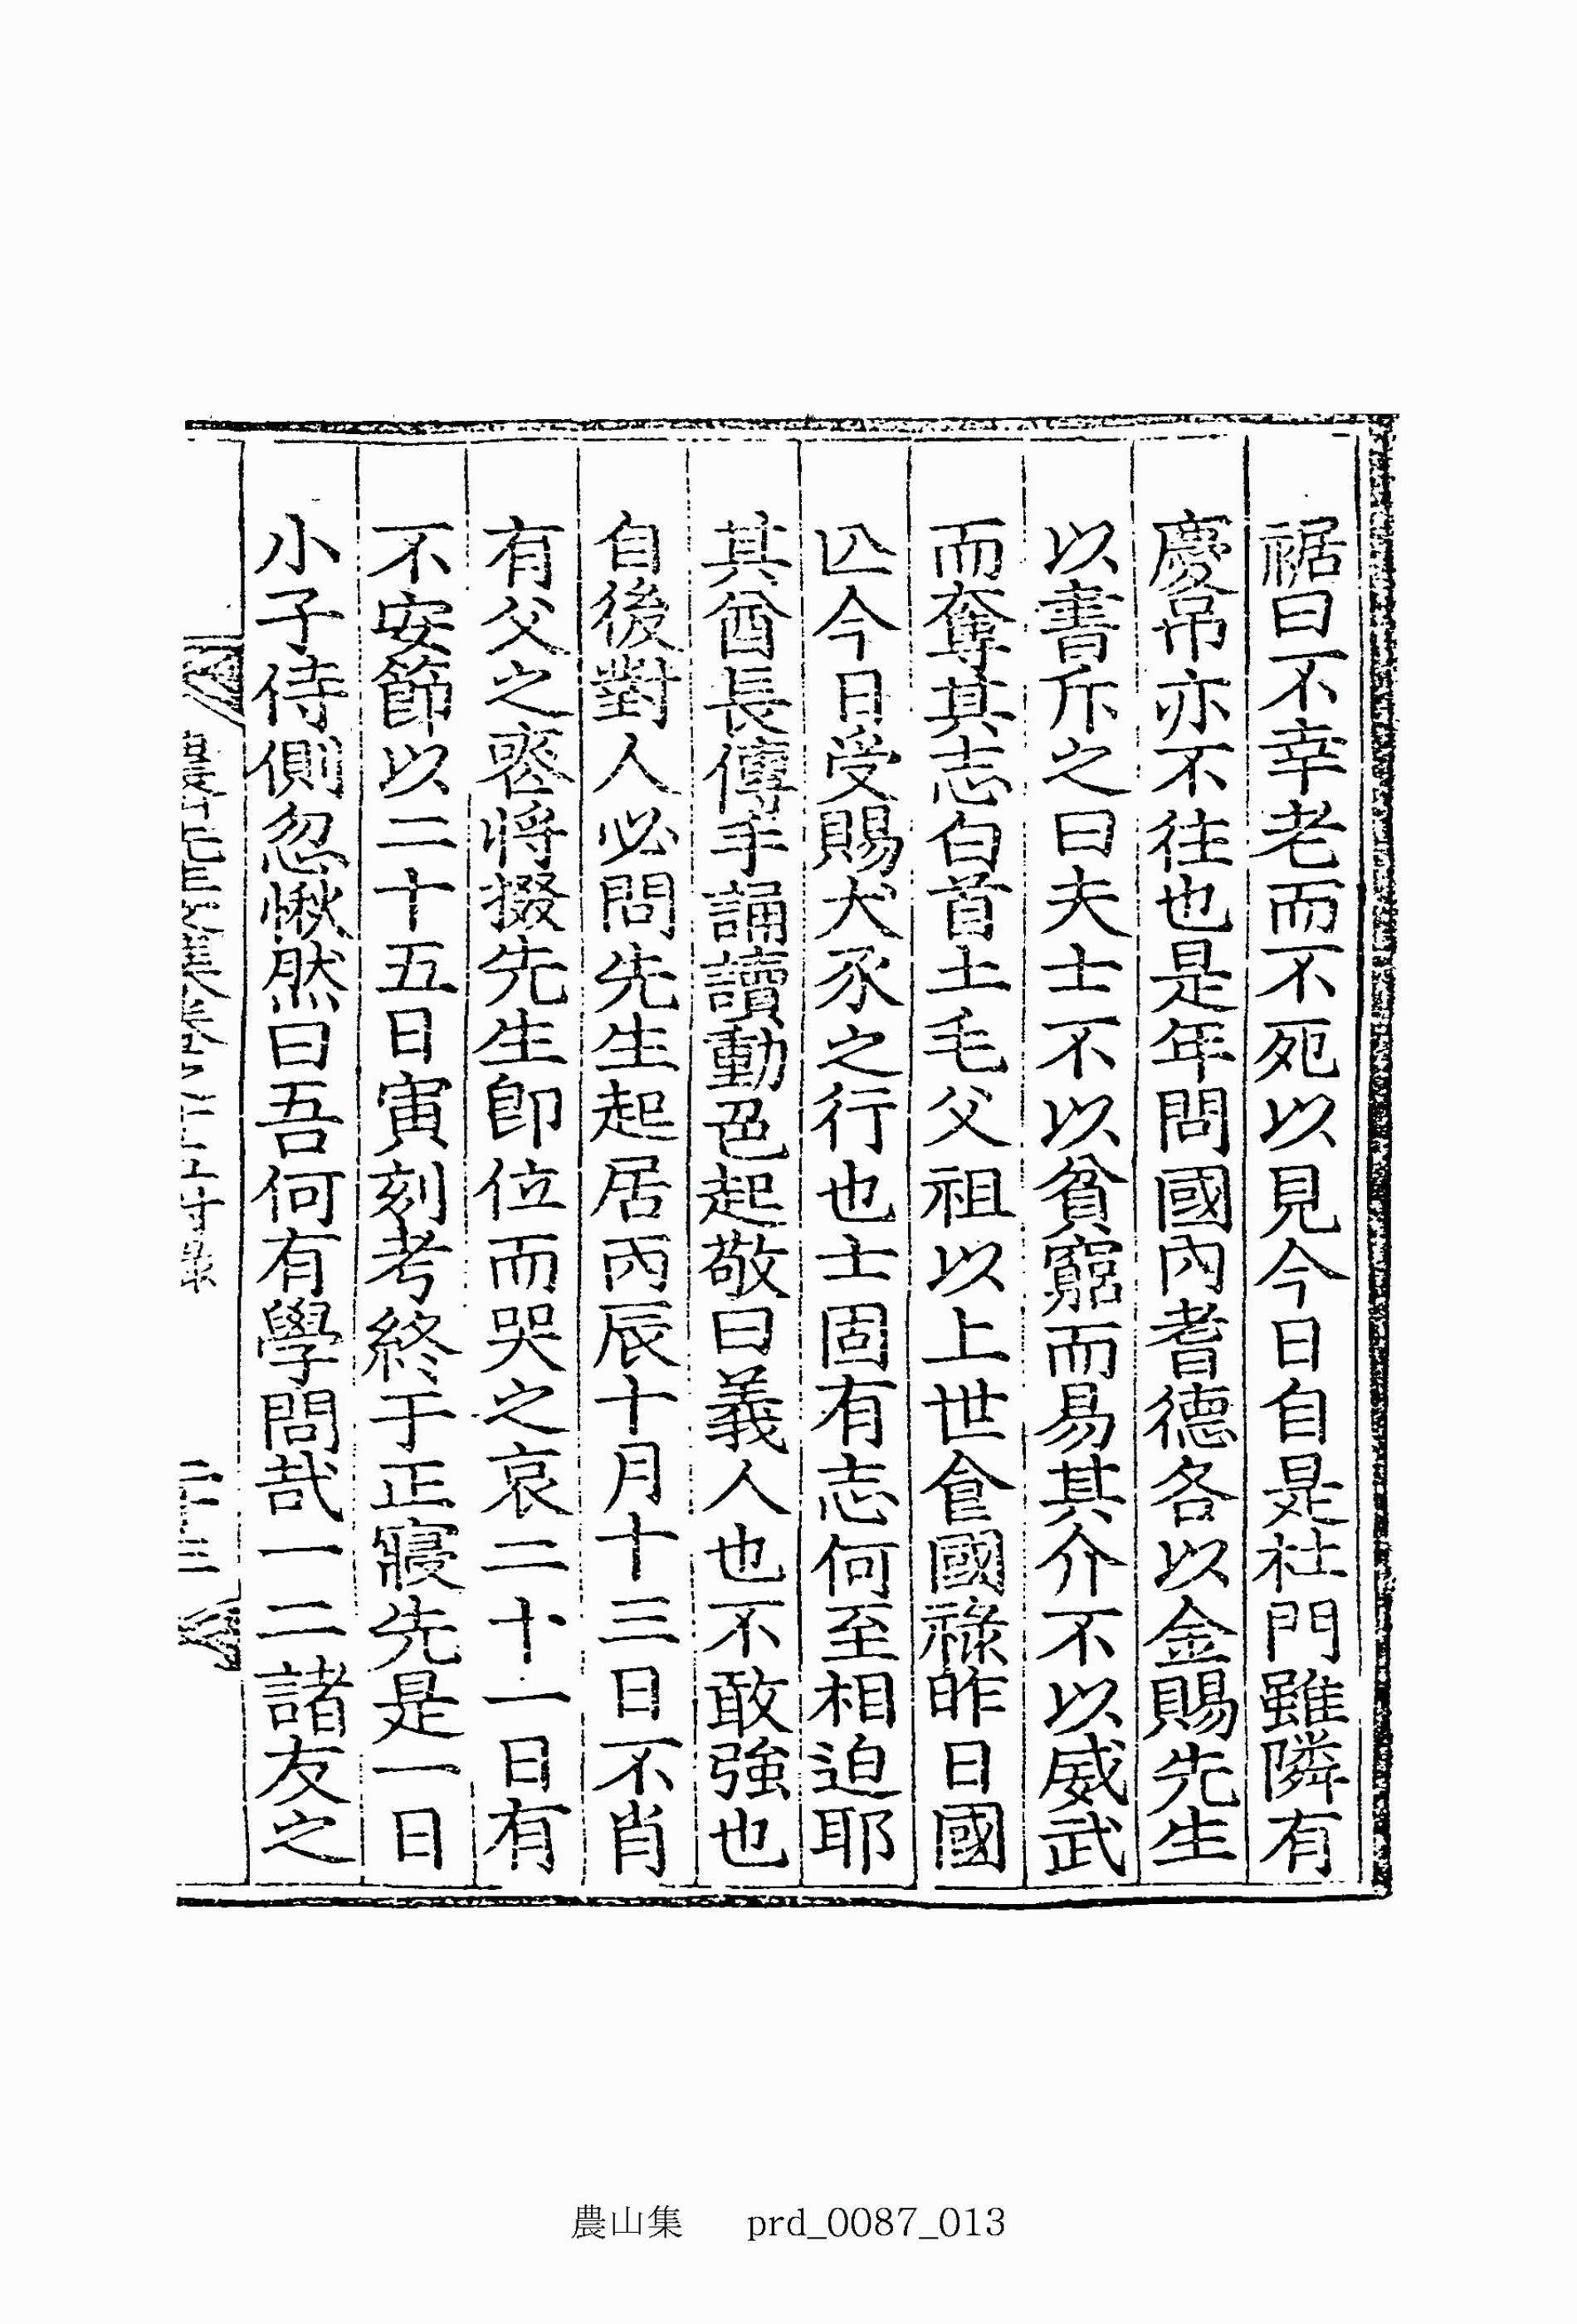 裾曰不幸老而不死以見今日自是杜門雖隣有
慶吊亦不往也是年問國內耆德各以金賜先生
以書斥之曰夫士不以貧窮而易其介不以威武
而奪其志白首土毛父祖以上世食國祿昨日國
亾今日受賜犬豕之行也士固有志何至相迫耶
其酋長傳手誦讀動色起敬曰義人也不敢強也
自後對人必問先生起居丙辰十月十三日不肖
有父之喪將掇先生卽位而哭之哀二十一日有
不安節以二十五日寅刻考終于正寢先是一日
小子侍側忽愀然曰吾何有學問哉一二諸友之
二十三
農山集 prd_0087_013